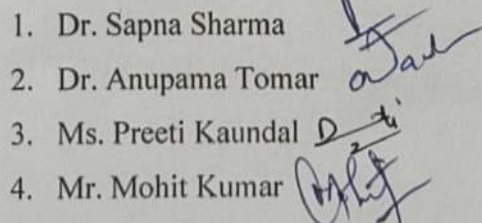 1. Dr. Sapna Sharma
2. Dr. Anupama Tomar
3. Ms. Preeti Kaundal
4. Mr. Mohit Kumar